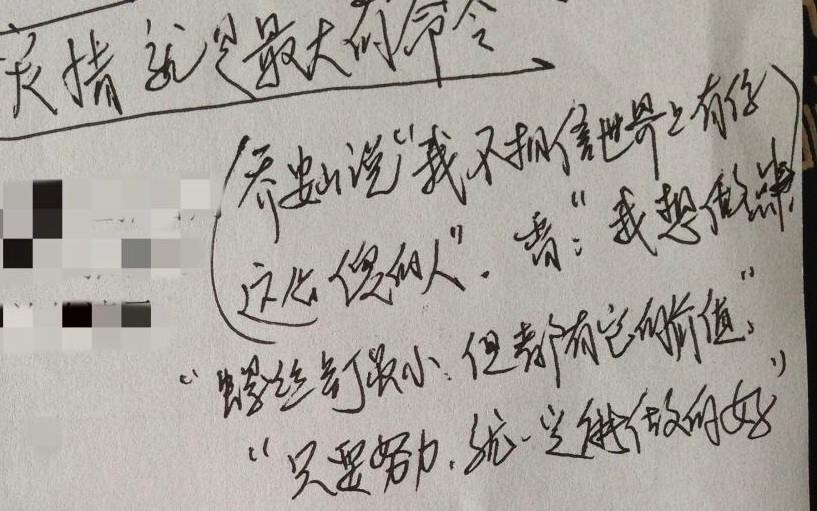 灾情就是最大的命令
(乔安山说“我不相信世界上有你
这么傻的人”. 雷:“我想做
“螺丝钉虽小. 但都有它的价值。”
“只要努力. 就一定能做的好”